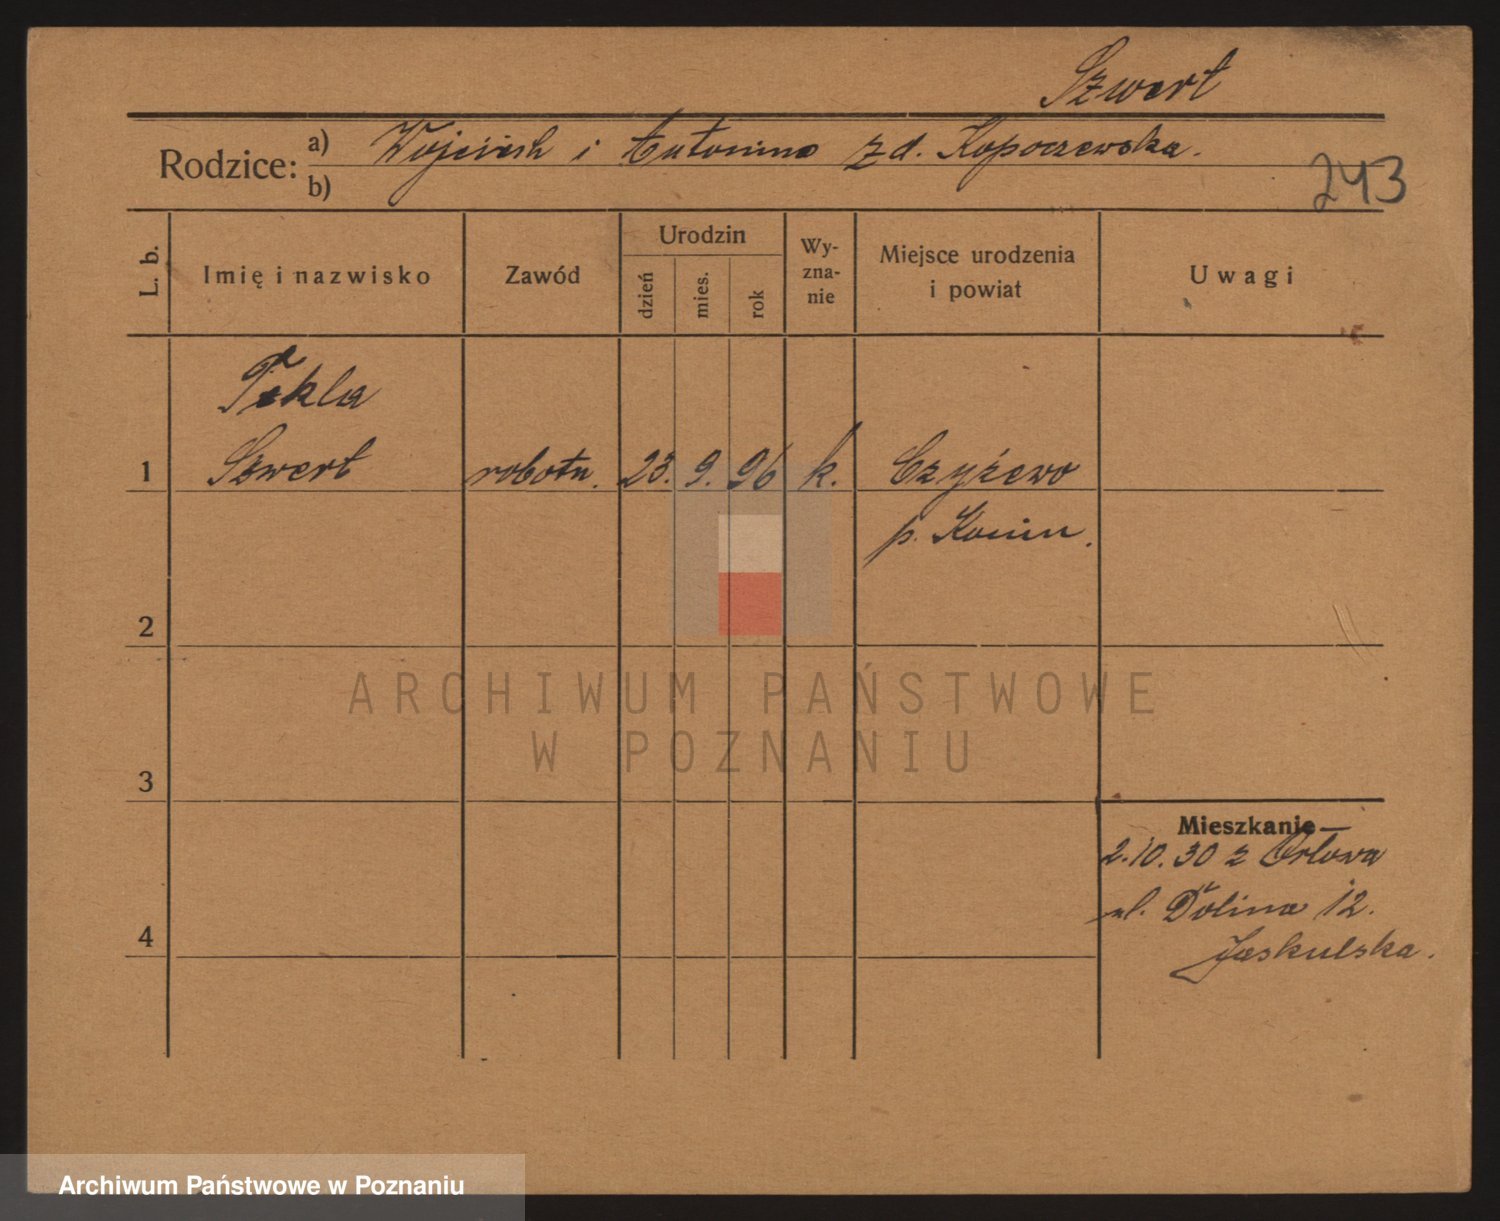 Szwert
Rodzice: a) Wojciech i Antonina z d. Kopoczewska.
b)
243
L. b. Imię i nazwisko Zawód Urodzin dzień mies. rok Wy-zna-nie Miejsce urodzenia i powiat Uwagi
Tekla
1 Szwert robotn. 23. 9. 96 k. Czyżewo
p. Konin.
2
ARCHIWUM PAŃSTWOWE
W POZNANIU
3
Mieszkanie
2.10.30 z Orłowa
ul. Dolina 12.
4 Jaskulska.
Archiwum Państwowe w Poznaniu